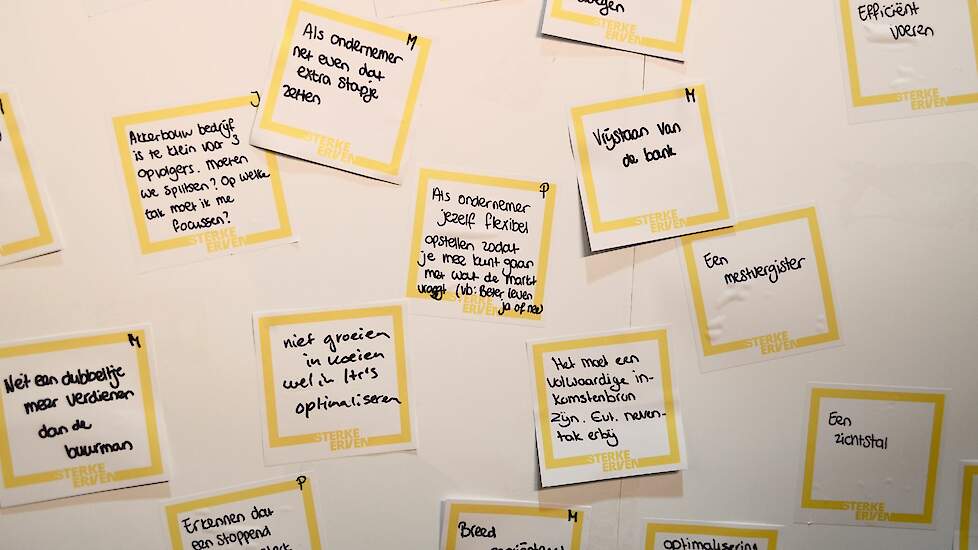 M
Als ondernemer
net even dat
extra stapje
zetten
STERKE
ERVEN
wegen
STERKE
ERVEN
Efficiënt
voeren
STERKE
ERVEN
J
Akkerbouw bedrijf
is te klein voor 3
opvolgers. Moeten
we splitsen? Op welke
tak moet ik me
focussen?
STERKE
ERVEN
M
Vrijstaan van
de bank
STERKE
ERVEN
P
Als ondernemer
jezelf flexibel
opstellen zodat
je mee kunt gaan
met wat de markt
vraagt (vb: Beter leven
ja of nee
STERKE
ERVEN
Een
mestvergister
STERKE
ERVEN
M
Net een dubbeltje
meer verdienen
dan de
buurman
STERKE
ERVEN
niet groeien
in koeien
wel in ltr's
optimaliseren
STERKE
ERVEN
Het moet een
volwaardige in-
komstenbron
zijn. Evt. neven-
tak erbij
STERKE
ERVEN
Een
zichtstal
STERKE
ERVEN
P
Erkennen dat
een stoppend
M
Breed
optimalisering